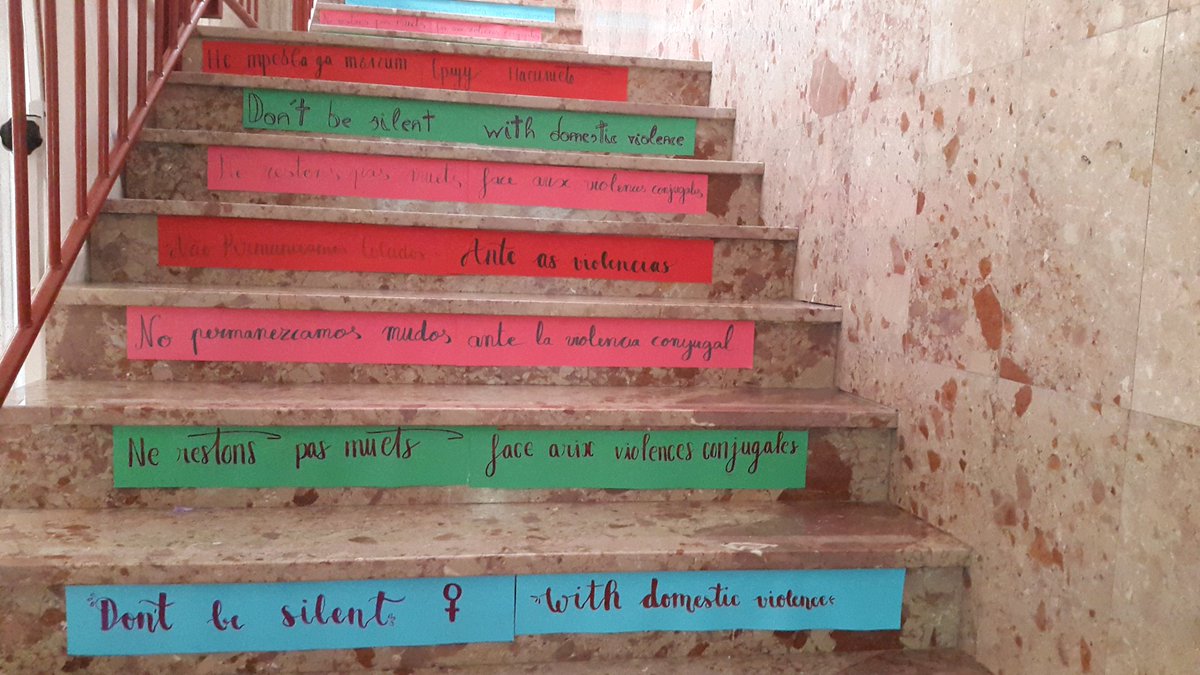 Ne restons pas muets
Не треbва да
Don't be silent with domestic violence
Ne restons pas muets face arix violences conjugales
Não Permaneçamos Calados Ante as violencias
No permanezcamos mudos ante la violencia conjugal
Ne restons pas muets face arix violences conjugales
Don't be silent ♀ with domestic violence